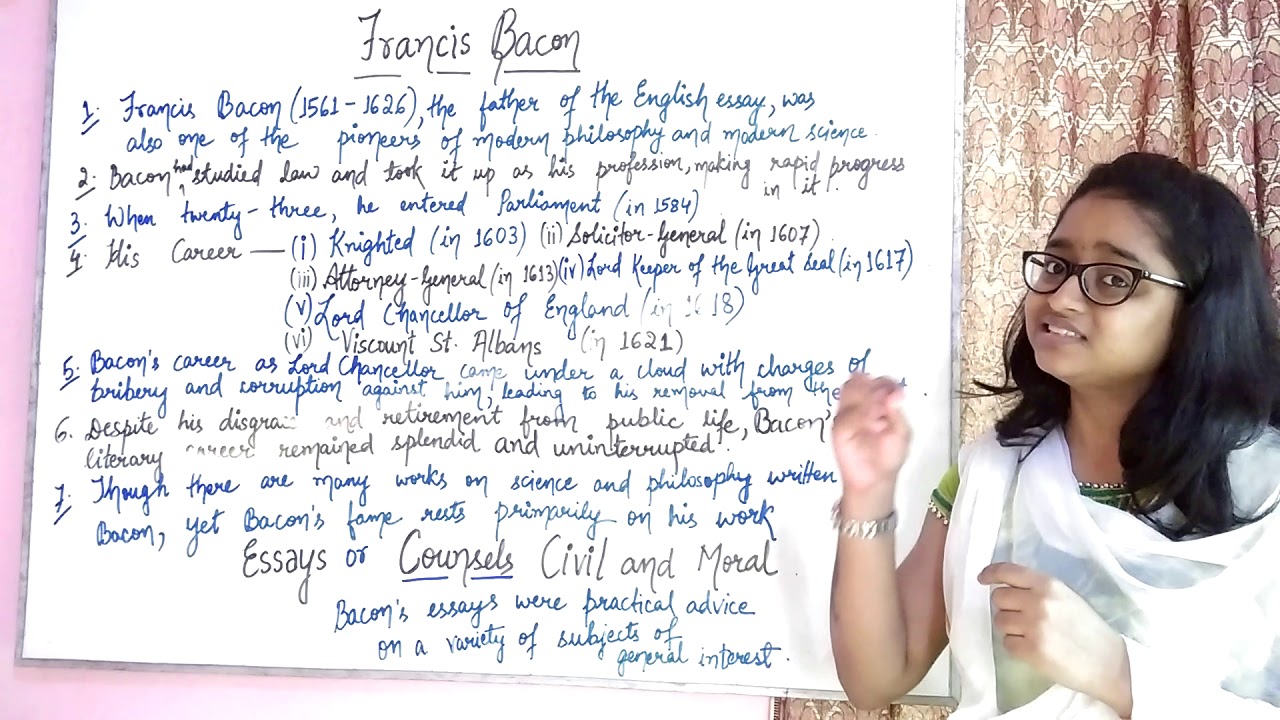 Francis Bacon
1. Francis Bacon (1561 - 1626), the father of the English essay, was
also one of the pioneers of modern philosophy and modern science.
2. Bacon had studied law and took it up as his profession, making rapid progress
in it.
3. When twenty-three, he entered Parliament (in 1584)
4. His Career — (i) Knighted (in 1603) (ii) Solicitor-General (in 1607)
(iii) Attorney-General (in 1613) (iv) Lord Keeper of the Great Seal (in 1617)
(v) Lord Chancellor of England (in 1618)
(vi) Viscount St. Albans (in 1621)
5. Bacon's career as Lord Chancellor came under a cloud with charges of
bribery and corruption against him, leading to his removal from the
6. Despite his and retirement from public life, Bacon's
literary career remained splendid and uninterrupted.
7. Though there are many works on science and philosophy written
Bacon, yet Bacon's fame rests primarily on his work
Essays or Counsels Civil and Moral
Bacon's essays were practical advice
on a variety of subjects of
general interest.